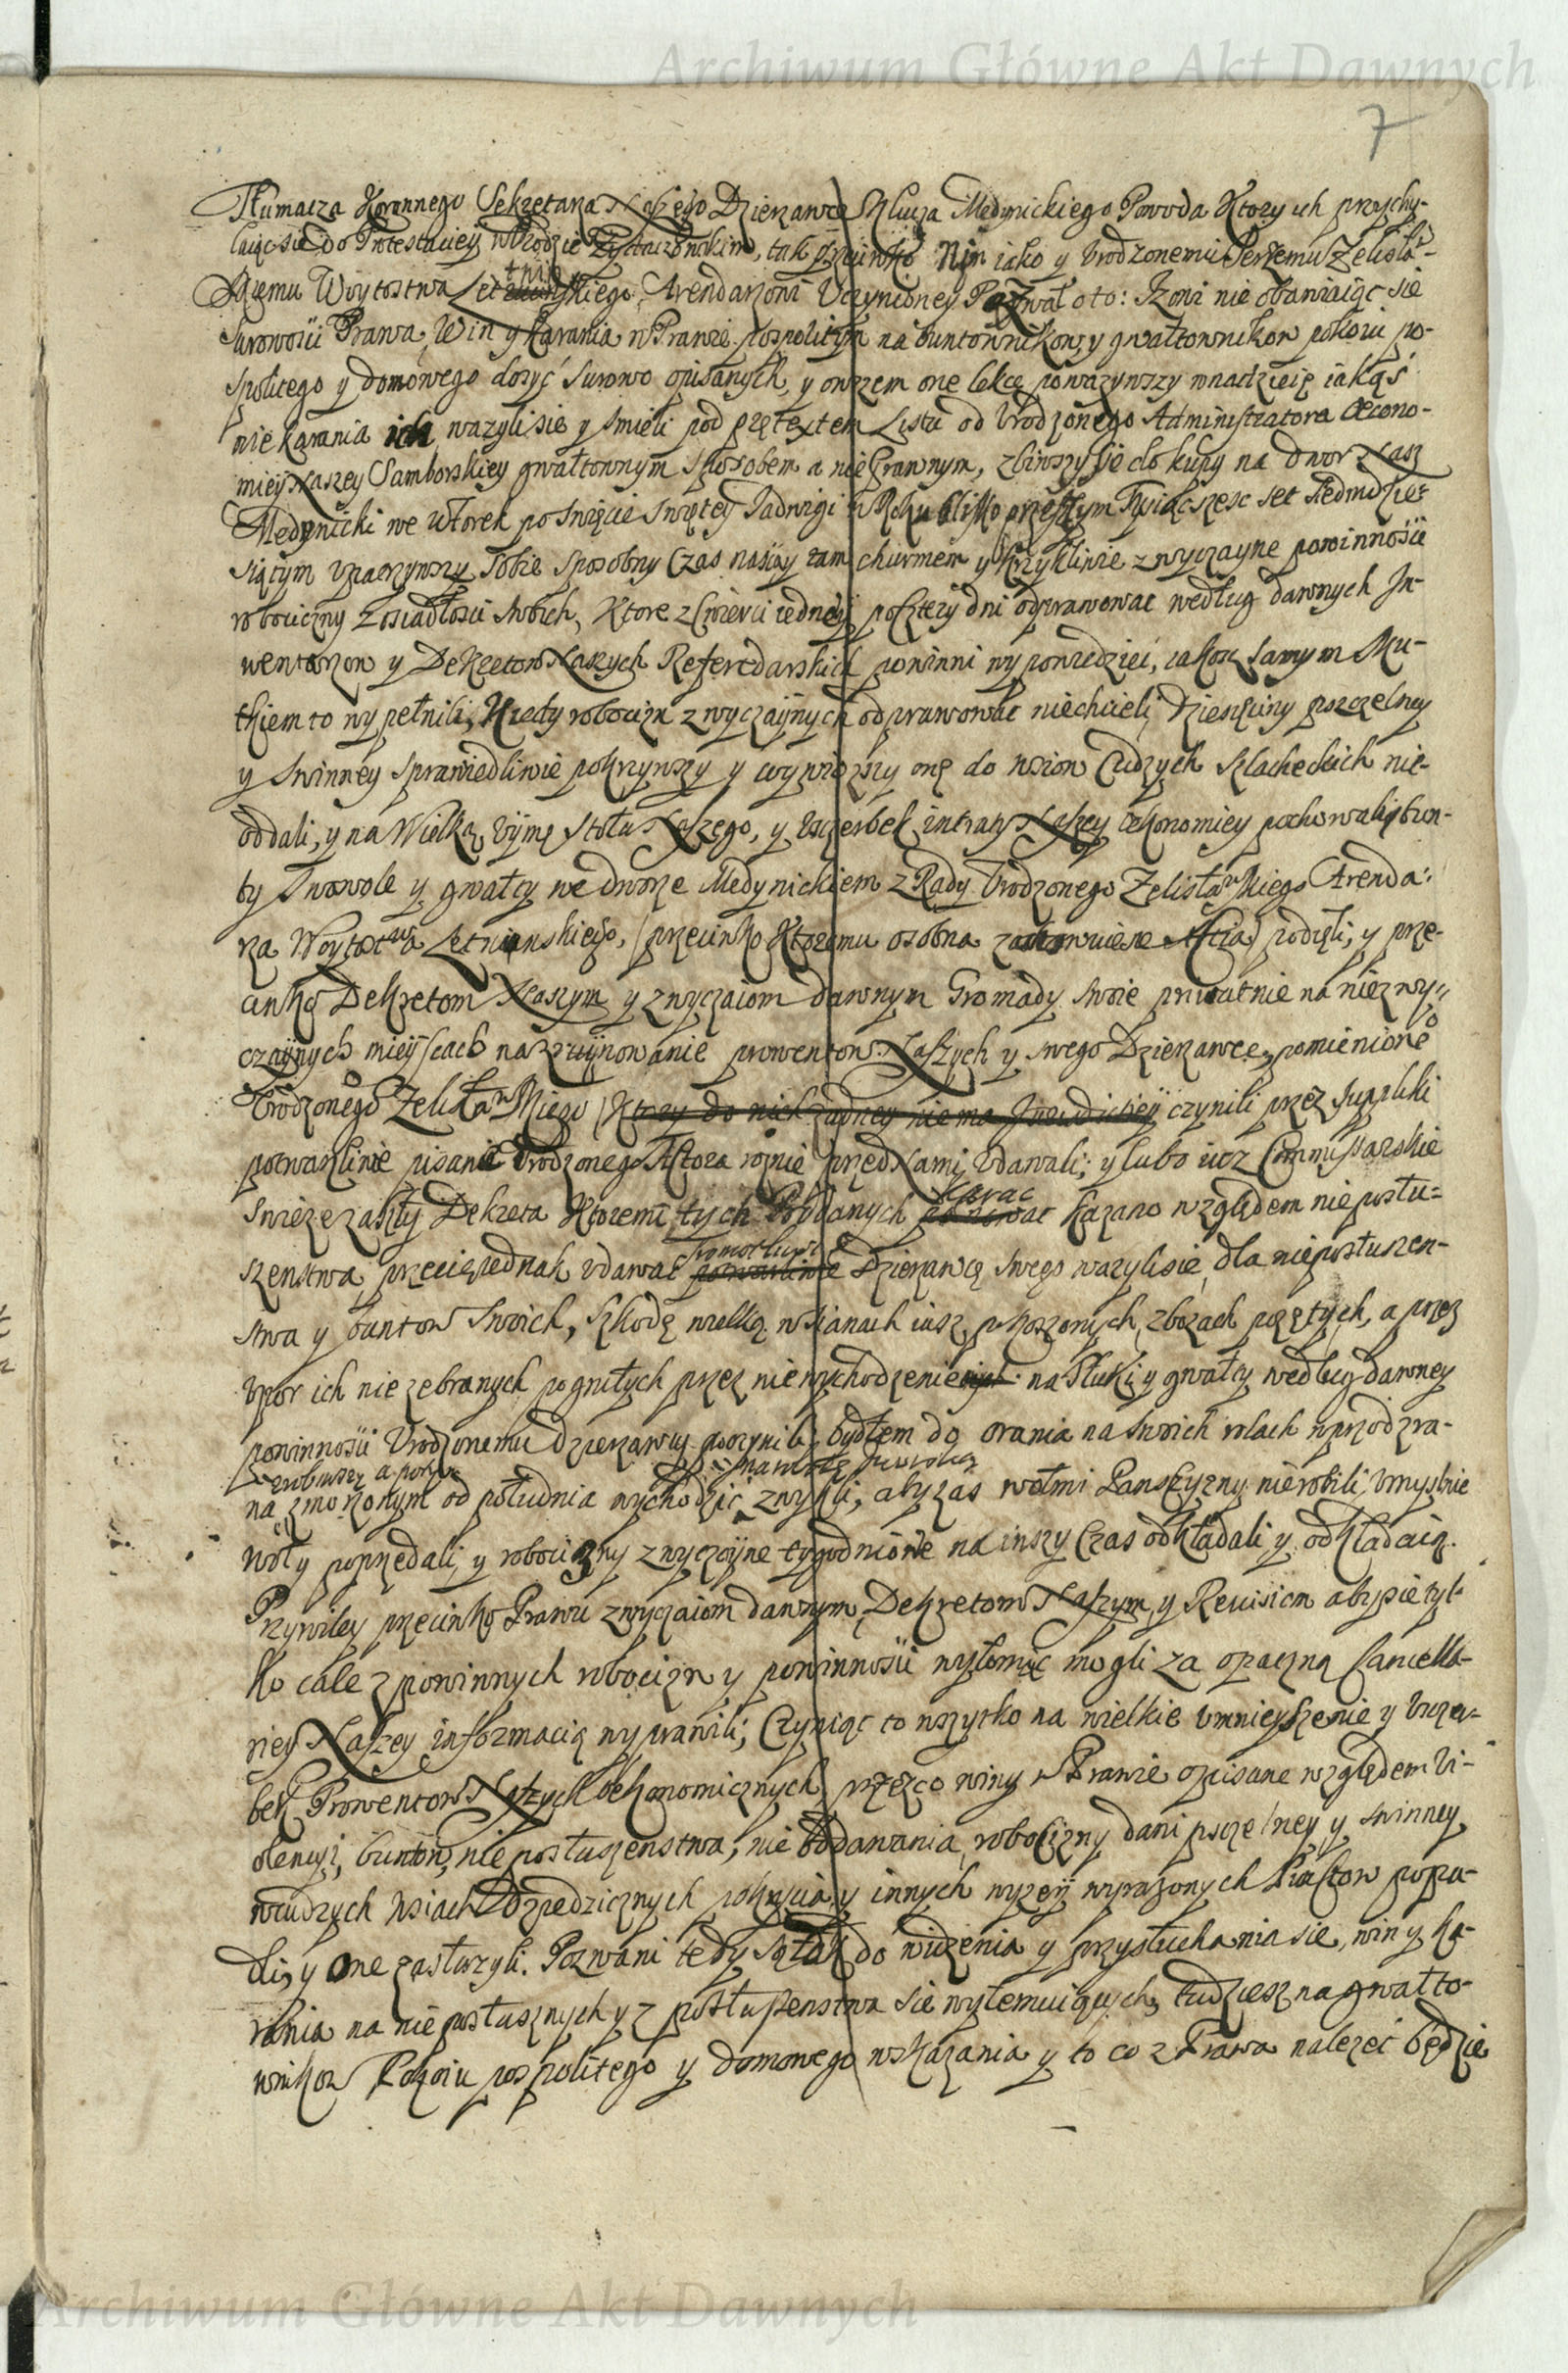 Archiwum Główne Akt Dawnych
7
Tłumacza Koronnego Sekretarza Naszego Dzierzawcę Klucza Medynickiego Powoda Ktorych przychy-
laiąc się do Protestaciey w Grodzie Zydaczowskim, tak przeciwko Nim iako y Urodzonemu Jerzemu Zelisła-
skiemu Woytostwa Letniańskiego Arendarzowi Uczynioney Pozwał o to: Iz oni nie obawiaiąc się
surowości Prawa, Win y karania w Prawie pospolitym na buntownikow y gwałtownikow pokoiu po-
spolitego y domowego dosyć surowo opisanych, y owszem one lekce powazywszy w nadzieię iakąś
nie karania ich wazyli się y smieli pod prętextem Listu od Urodzonego Administratora Œcono-
miey Naszey Samborskiey gwałtownym sposobem a nie Prawnym, zbiwszy się do kupy na dwor Nasz
Medynicki we wtorek po Swięcie Swiętey Jadwigi w Roku blisko przeszłym Tysiąc szesc set siedmdzie-
siątym upatrzywszy sobie sposobny Czas naszły tam churmem y krzykliwie zwyczayne powinności
robocizny z osiadłosci swoich, Ktore z cwierci iedney po cztery dni odprawować według dawnych In-
wentarzow y Dekretow Naszych Referedarskich powinni wypowiedzieć, iakosz samym sku-
tkiem to wypełnili, Kiedy robocizn zwyczaijnych odprawować niechcieli, Dziesięciny pszczelney
y swinney sprawiedliwie pokrzywszy y wywiozszy onę do wsiow Cudzych szlacheckich nie-
oddali, y na Wielką Uymę Stołu Naszego, y uszczerbek intraty Naszey Oekonomiey pochowali, bun-
ty swowole y gwałty we dworze Medynickiem z Rady Urodzonego Zelisławskiego Arenda-
rza Woytostwa Letnianskiego, (przeciwko Ktoremu osobna Actia) podięli, y prze-
ciwko Dekretom Naszym y zwyczaiom dawnym Gromady swoie priwatnie na niezwy-
czaijnych mieijscach na zruijnowanie prowentow Naszych y swego Dzierzawce, pomienione
Urodzonego Zelisławskiego (Ktory do nich zadney nie ma Jurisdictiey czynili przez suppliki
potwarzliwie pisanie Urodzonego Aktora roznie przed Nami Udawali; y lubo iusz Commissarskie
swieze zaszły Dekreta Ktoremi tych Poddanych karać kazano względem nieposłu-
szenstwa, przecię iednak udawać pomotliwie Dzierzawcę swego wazyli się, dla nieposłuszen-
stwa y buntow swoich, szkodę wielką w sianach iusz pokoszonych, zbozach pozętych, a przez
upor ich nie zebranych pogniłych przez nie wychodzenie na Tłuki y gwałty według dawney
powinności Urodzonemu Dzierzawcy poczynili, bydłem do orania na swoich rolach wprzod zra-
na zmorzonym od południa wychodzić zwykli, aby zas wołmi Panszczyzny nierobili, umyslnie
woły poprzedali, y robocizny zwyczaijne tygodniowe na inszy Czas odkładali y odkładaią.
Przywiley przeciwko Prawu zwyczaiom dawnym, Dekretom Naszym, y Revisiom aby się tyl-
ko cale z powinnych robocizn y powinności wyłomać mogli za opaczną Cancella-
riey Naszey informacią wyprawili; Czyniąc to wszytko na wielkie umnieyszenie y uszczer-
bek Prowentow Naszych Oekonomicznych, przez co winy w Prawie opisane względem Vi-
olencyi, buntow, nieposłuszenstwa, nie oddawania robocizny dani pszczelney y swinney,
w cudzych wsiach Dziedzicznych pokrycia, y innych wyzeij wyrazonych Excessow popa-
dli, y one zasłuzyli. Pozwani tedy są tak do widzenia y przysłuchania się, winy ka-
rania na nieposłusznych y z posłuszenstwa się wyłemuiących, tudziesz na gwałto-
wnikow Pokoiu pospolitego y domowego wskazania y to co z Prawa nalezeć będzie
Archiwum Główne Akt Dawnych